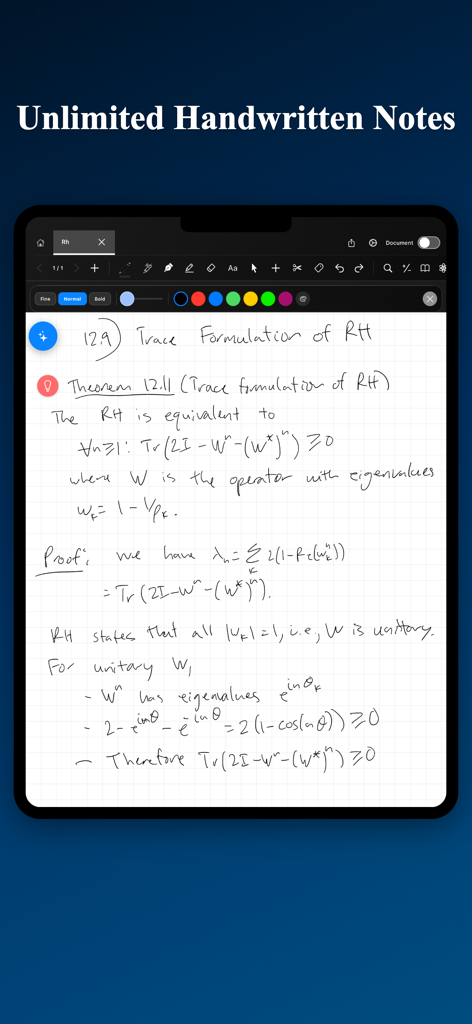 Unlimited Handwritten Notes
Rh
Document
1/1
Aa
Fine Normal Bold
12.9) Trace Formulation of RH
Theorem 12.11 (Trace formulation of RH)
The RH is equivalent to
∀n≥1: Tr(2I - Wⁿ - (W*)ⁿ) ≥ 0
where W is the operator with eigenvalues
wₖ = 1 - 1/ρₖ.
Proof: we have λₙ = Σₖ 2(1 - Re(wₖⁿ))
= Tr(2I - Wⁿ - (W*)ⁿ).
RH states that all |wₖ| = 1, i.e., W is unitary.
For unitary W,
- Wⁿ has eigenvalues e^{inθₖ}
- 2 - e^{inθ} - e^{-inθ} = 2(1 - cos(nθ)) ≥ 0
- Therefore Tr(2I - Wⁿ - (W*)ⁿ) ≥ 0